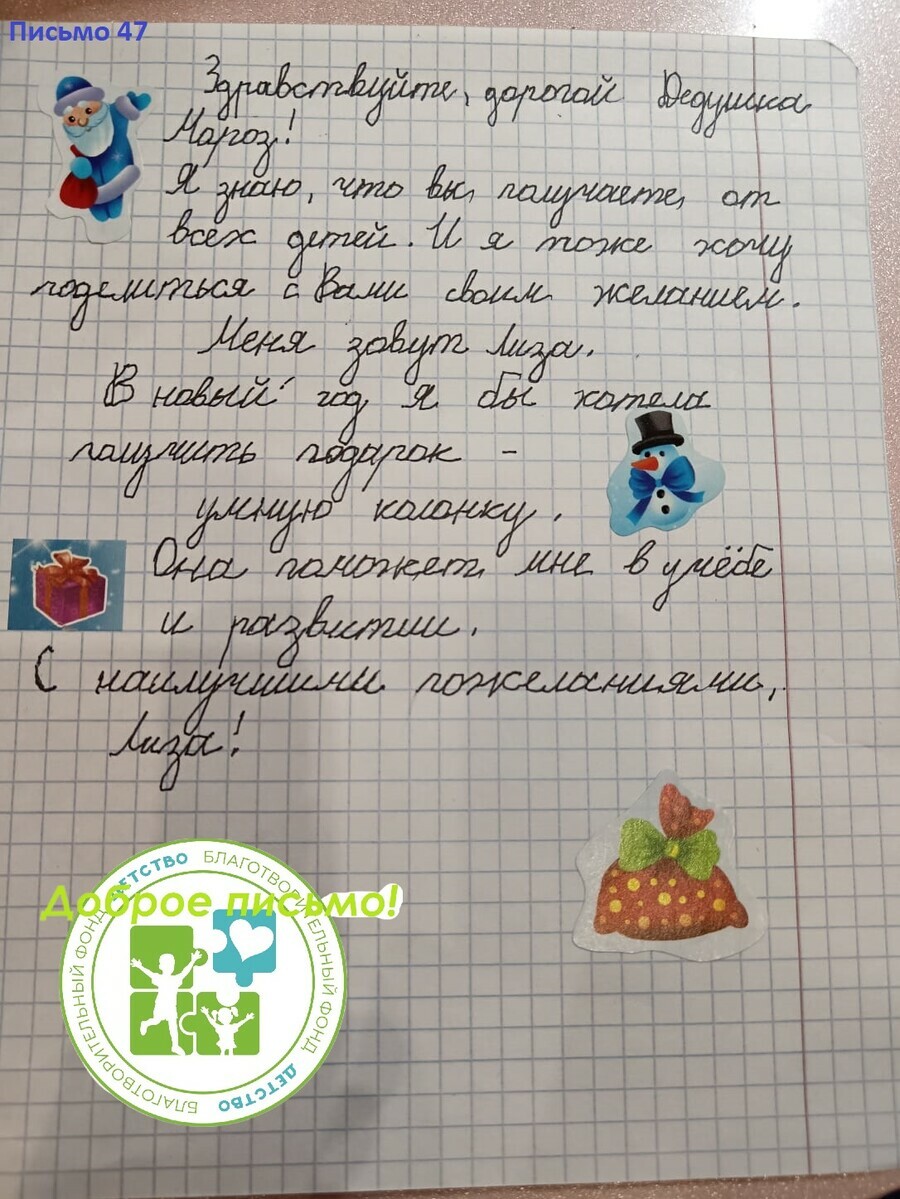 Письмо 47
Здравствуйте, дорогой Дедушка
Мороз!
Я знаю, что вы, получаете, от
всех детей. И я тоже хочу
поделиться с Вами своим желанием.
Меня зовут Лиза.
В новый год я бы хотела
получить подарок -
умную колонку.
Она поможет мне в учёбе
и развитии.
С наилучшими пожеланиями,
Лиза!
Доброе письмо!
БЛАГОТВОРИТЕЛЬНЫЙ ФОНД ДЕТСТВО
БЛАГОТВОРИТЕЛЬНЫЙ ФОНД ДЕТСТВО